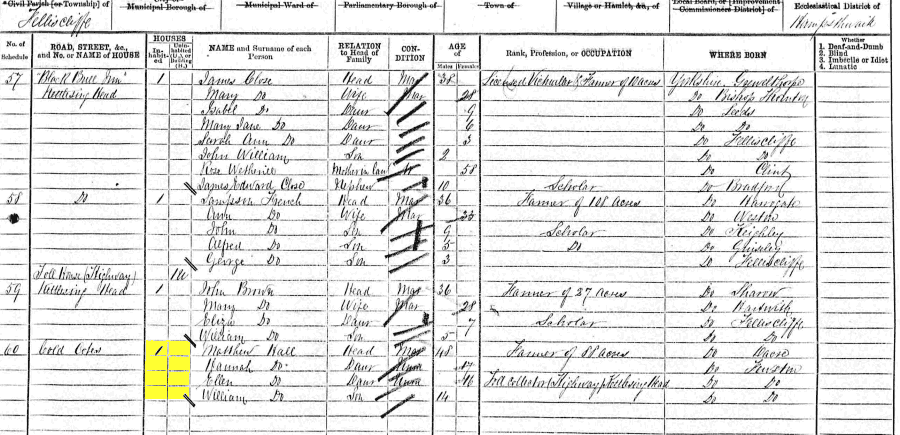 Civil Parish [or Township] of Municipal Borough of Municipal Ward of Parliamentary Borough of Town of Village or Hamlet, &c., of Local Board, or [Improvement Commissioners District] of Ecclesiastical District of
Felliscliffe
No. of Schedule ROAD, STREET, &c., and No. or NAME of HOUSE HOUSES In-habited Uninhabited (U.), or Building (B.) NAME and Surname of each Person RELATION to Head of Family CON-DITION AGE of Males Females Rank, Profession, or OCCUPATION WHERE BORN Whether 1. Deaf-and-Dumb 2. Blind 3. Imbecile or Idiot 4. Lunatic
57 Black Bull Inn 1 James Close Head Mar 38 Licensed Victualler & Farmer of Acres Yorkshire
Kettlesing Head Mary Do Wife Mar 28 Do Bishop Thornton
Isabel Do Daur 9 Do Leeds
Mary Jane Do Daur 6 Do Do
Sarah Ann Do Daur 3 Do Felliscliffe
John William Son 2 Do Do
Rose Mother in law W 58 Do Clint
James Edward Close Nephew 10 Scholar Do Bradford
58 Do 1 Sampson French Head Mar 36 Farmer of 108 acres Do Harrogate
Ann Do Wife Mar 33 Do Weston
John Do Son 9 Scholar Do Keighley
Alfred Do Son 5 Do Do Guiseley
George Do Son 3 Do Felliscliffe
Toll House (Highway) 1U
59 Kettlesing Head 1 John Brown Head Mar 36 Farmer of 27 acres Do Sharow
Mary Do Wife Mar 28 Do
Eliza Do Daur 7 Scholar Do Felliscliffe
William Do Son 5 Do Do
60 Cold Cotes 1 Matthew Hall Head Mar 48 Farmer of 88 acres Do Dacre
Hannah Do Daur Unm 17 Do Fewston
Ellen Do Daur Unm 16 Toll collector (Highway) Kettlesing Head Do Do
William Do Son 14 Do Do